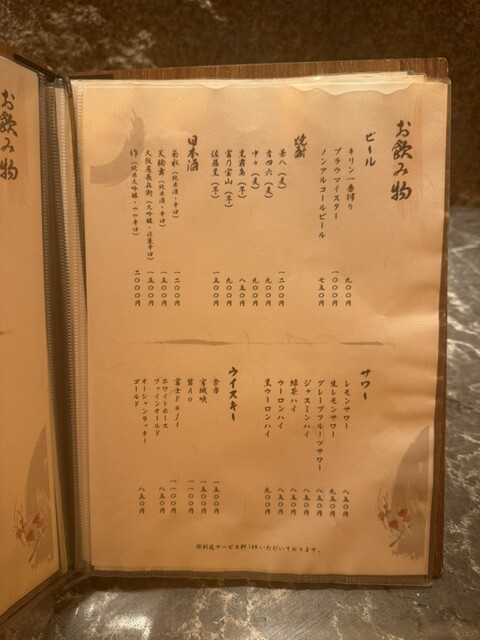 お飲み物
ビール
キリン一番搾り 九〇〇円
ブラウマイスター 一〇〇〇円
ノンアルコールビール 七五〇円
焼酎
兼八(麦) 一二〇〇円
吉四六(麦) 九〇〇円
中々(麦) 九〇〇円
黒霧島(芋) 八五〇円
富乃宝山(芋) 九〇〇円
佐藤黒(芋) 一五〇〇円
日本酒
菊水(純米酒・辛口) 一二〇〇円
天狗舞(純米酒・辛口) 一五〇〇円
大阪屋長兵衛(大吟醸・淡麗辛口) 一五〇〇円
作(純米大吟醸・やや辛口) 二〇〇〇円
サワー
レモンサワー 八五〇円
生レモンサワー 九五〇円
グレープフルーツサワー 八五〇円
ジャスミンハイ 八五〇円
緑茶ハイ 八五〇円
ウーロンハイ 八五〇円
黒ウーロンハイ 九〇〇円
ウイスキー
余市 一五〇〇円
宮城峡 一五〇〇円
碧Ao 一一〇〇円
富士Fuji 一一〇〇円
ホワイトホース
ファインオールド 八五〇円
オーシャンラッキー
ゴールド 八五〇円
※別途サービス料
いただいております。
お飲み物